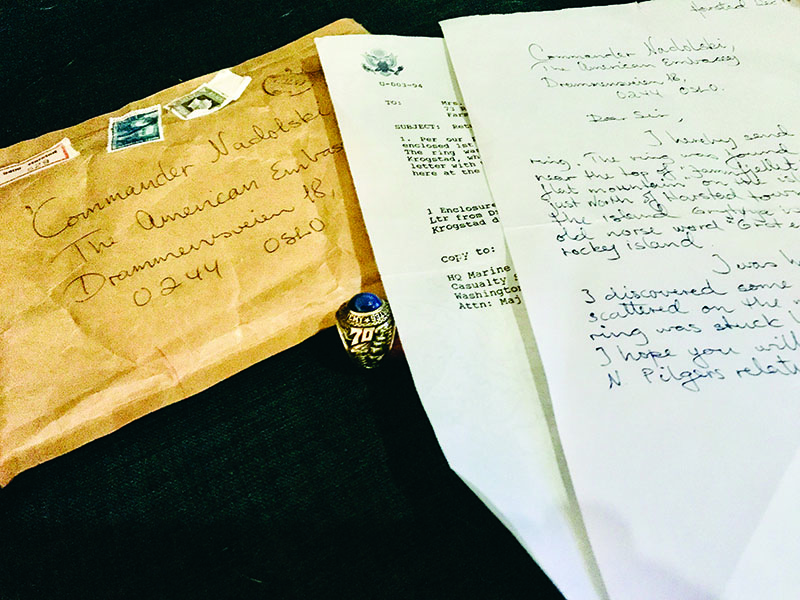 Commander Nadolski
The American Embas
Drammensveien 18,
0244 OSLO
70
TO: Mrs.
73
Far
SUBJECT: Ret
1. Per our
enclosed 1st
The ring was
Krogstad, wh
letter with
here at the
1 Enclosure
Ltr from D
Krogstad d
copy to:
HQ Marine
Casualty
Washington
Attn: Maj
Harstad Dec
Commander Nadolski,
The American Embassy
Drammensveien 18,
0244 OSLO.
Dear Sir,
I hereby send
ring. The ring was found
near the top of
flat mountain" on the isl
just North of Harstad town
the island
old norse word "Grot
rocky island.
I was h
I discovered some
scattered on the m
ring was stuck
I hope you will
N Pilgers relati